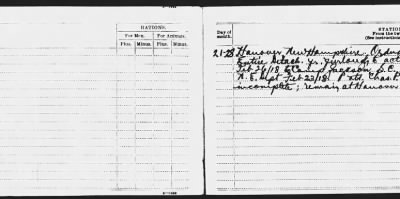 RATIONS.
For Men. For Animals.
Plus. Minus. Plus. Minus.
Day of month.
STATION
From the tw
(See instruction
21-28 Hanover New Hampshire. Ordna
Entire Detach. Yr. furlough & act
Feb 26/18 to Camp Jackson S.C.
Feb 23/18. Chas. P.
incomplete; remain at Hanover